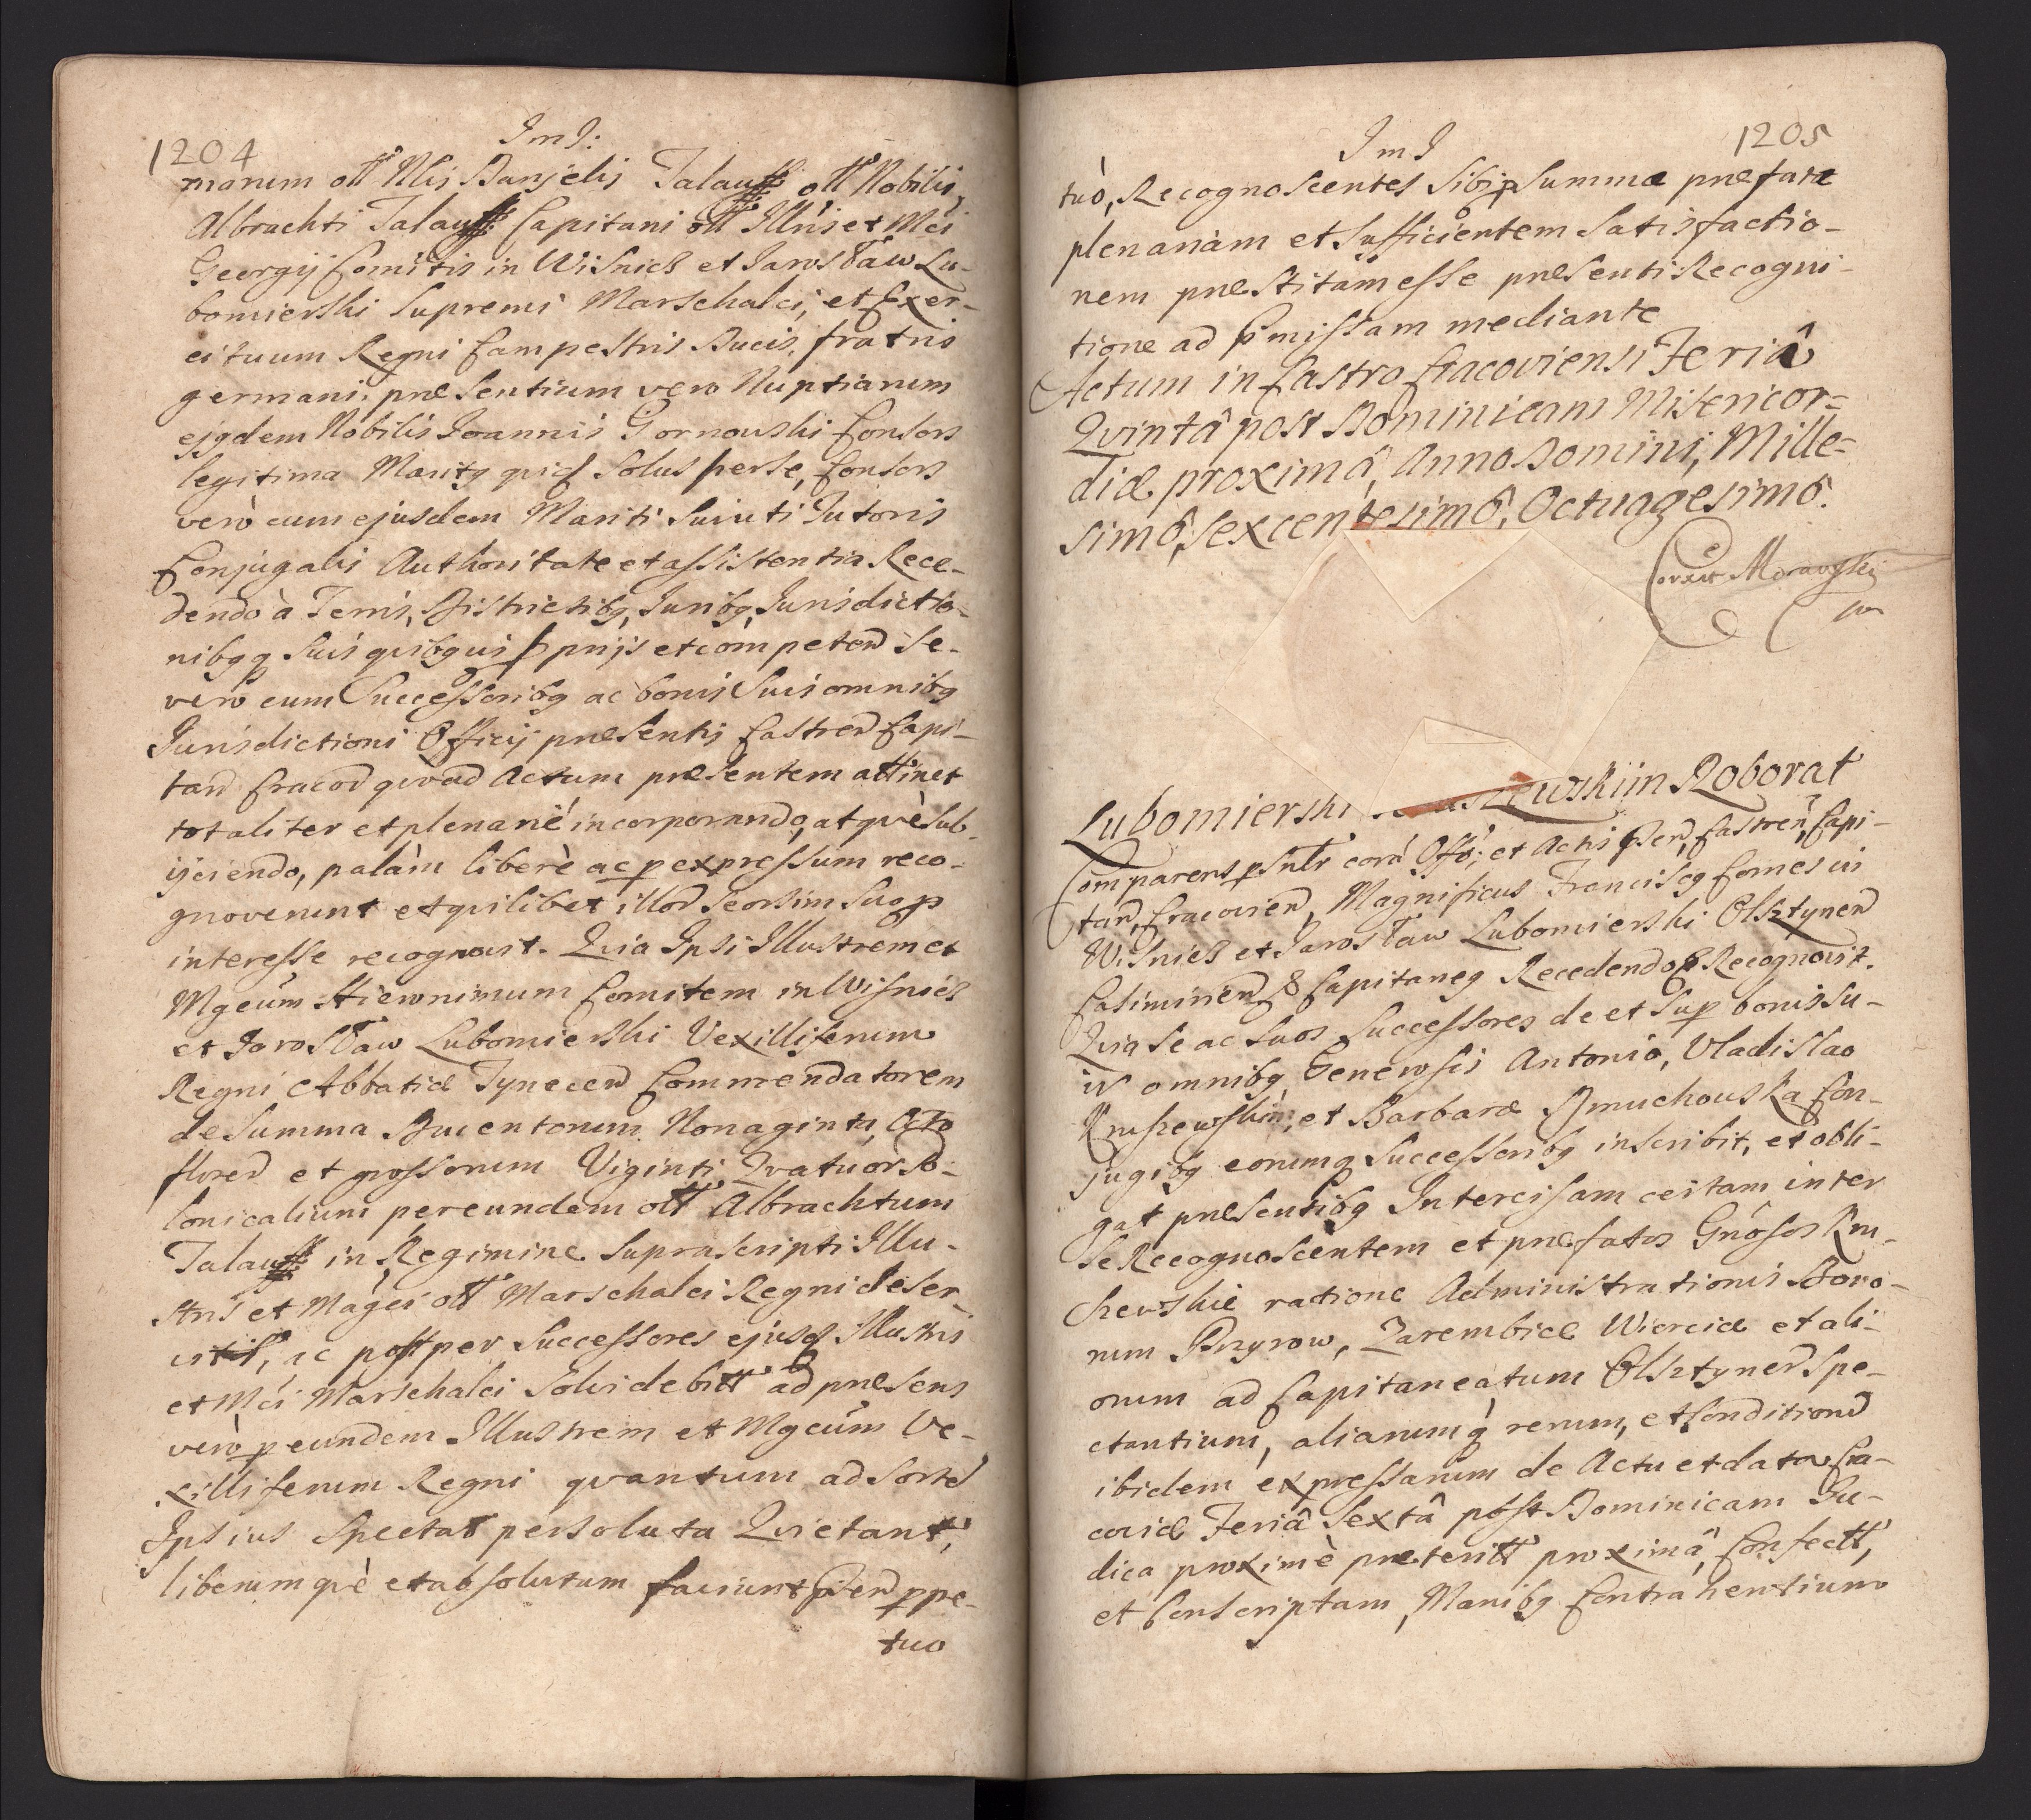 1204
ImI:
marum olt Nlis Danjelis Talauff olt Nobilis,
Albrachti Talauff Capitani olt Illris et Mci
Georgij Comitis in Wisnicz et Jarosław Lu-
bomierski Supremi Marschalci, et Exer-
cituum Regni Campestris Ducis, fratris
germani, præsentium vero Nuptiarum
ejqdem Nobilis Joannis Gornowski Consors
legitima Maritq quid Solus perse, Consors
verò cum ejusdem Mariti Sui uti Tutoris
Conjugali Authoritate et assistentia Rece-
dendo à Terris, Districtibq, Juribq, Jurisdictio-
nibqq Suis quibqvis ppriis et competen Se-
vero cum Successoribq ac bonis Suis omnibq
Jurisdictioni Officij præsentis Castren Capi-
tan Cracov qvoad Actum præsentem attinet
totaliter et plenariè incorporando, atqvè Sub-
ijciendo, palàm liberè ac p expressum reco-
gnoverunt et qvilibet illor Seorsim Sua p
interesse recognovit. Qvia Ipsi Illustrem et
Mgcum Hieronimum Comitem in Wisnicz
et Jarosław Lubomierski Vexilliferum
Regni Abbatiæ Tynecen Commendatorem
de Summa Ducentorum Nonaginta, Octo
floren et grossorum Viginti Qvatuor Po-
lonicalium per eundem olt Albrachtum
Talauff in Regimine Suprascripti Illu-
stris et Magci olt Marschalci Regni deser-
vit, ac post per Successores ejusd Illustris
et Mci Marschalci Solvi debitt ad præsens
verò p eundem Illustrem et Mgcum Ve-
xilliferum Regni qvantum ad Sorte
Ipsius Spectat persoluta Qvietant,
liberumqvè et absolutum faciunt ppe-
tuo
ImI
1205
tuò, Recognoscentes Sibi p Summæ præfatæ
plenariam et Sufficientem Satisfactio-
nem præstitam esse præsenti Recogni-
tione ad pmissam mediante
Actum in Castro Cracoviensi Feriâ
Qvintâ post Dominicam Misericor-
diæ proximâ, Anno Domini, Mille-
simô, Sexcentesimô, Octuagesimô.
Correxit Morawski
mp
Lubomierski Kruszewskim Roborat
Comparens psntr corá Offo; et Actis psen, Castren, Capi-
tan, Cracovien, Magnificus Franciscq Comes in
Wisnicz et Jarosław Lubomierski Olsztynen
Casimirien & Capitaneq Recedendo & Recognovit.
Qvia Se ac Suos Successores de et Sup bonis Su-
is omnibq Generosis Antonio, Vladislao
Kruszewskim, et Barbaræ Dmuchowska Con-
jugibq eorumq Successoribq inscribit, et obli-
gat præsentibq Intercisam certam inter
Se Recognoscentem et præfatos Gnosos Kru-
szewskie ratione Administrationis Bono-
rum Przyrow, Zarembice Wiercice et ali-
orum ad Capitaneatum Olsztynen Spe-
ctantium, aliarumq rerum, et Condition
ibidem expressarum de Actu et data Cra-
coviæ Feriâ Sextâ post Dominicam Ju-
dica proximè præteritt proximâ, Confectt,
et Conscriptam, Manibq Contrahentium